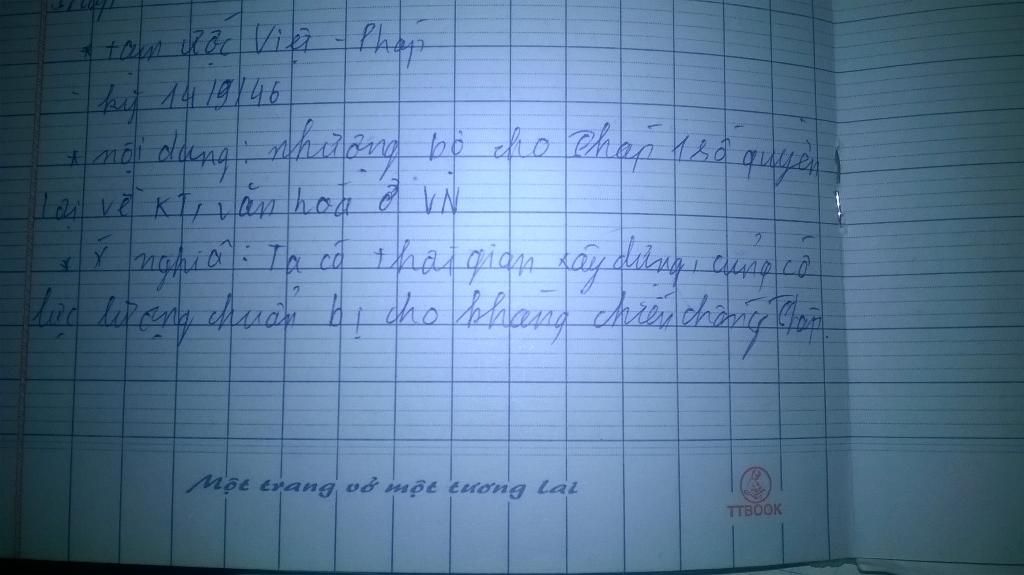 * tạm ước Việt - Pháp
- ký 14/9/46
* nội dung: nhường bộ cho Pháp 1 số quyền
lợi về KT, văn hoá ở VN
* ý nghĩa: Ta có thời gian xây dựng, củng cố
lực lượng chuẩn bị cho kháng chiến chống Pháp.
Một trang vở một tương lai
TTBOOK